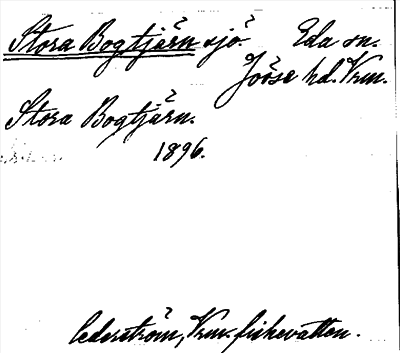 Stora Bogtjärn sjö. Eda sn.
Jösse hd. Vrm.
Stora Bogtjärn.
1896.
Cederström, Vrm. fiskevatten.